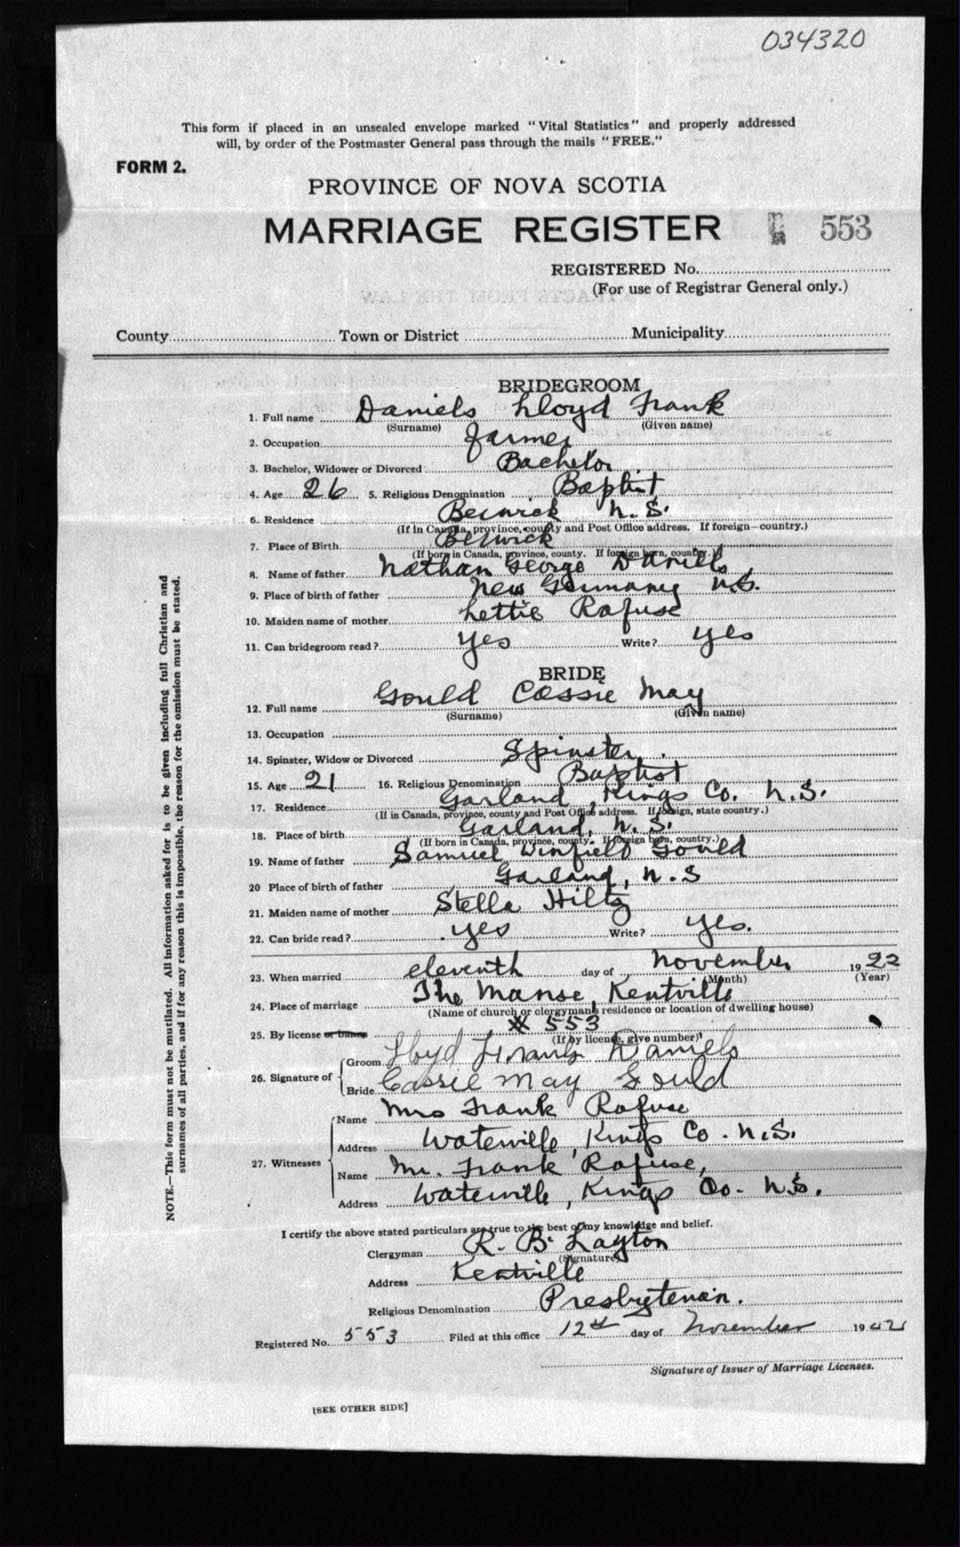 034320
This form if placed in an unsealed envelope marked "Vital Statistics" and properly addressed
will, by order of the Postmaster General pass through the mails "FREE."
FORM 2.
PROVINCE OF NOVA SCOTIA
MARRIAGE REGISTER 553
REGISTERED No.
(For use of Registrar General only.)
County Town or District Municipality
BRIDEGROOM
1. Full name Daniels Lloyd Frank
(Surname) (Given name)
2. Occupation farmer
3. Bachelor, Widower or Divorced Bachelor
4. Age 26 5. Religious Denomination Baptist
6. Residence Berwick N.S.
(If in Canada, province, county and Post Office address. If foreign—country.)
7. Place of Birth Berwick
(If born in Canada, province, county. If foreign born, country.)
8. Name of father Nathan George Daniels
9. Place of birth of father New Germany N.S.
10. Maiden name of mother Lettie Rafuse
11. Can bridegroom read? yes Write? yes
BRIDE
12. Full name Gould Cassie May
(Surname) (Given name)
13. Occupation
14. Spinster, Widow or Divorced Spinster.
15. Age 21 16. Religious Denomination Baptist
17. Residence Garland, Kings Co. N.S.
(If in Canada, province, county and Post Office address. If foreign, state country.)
18. Place of birth Garland, N.S.
(If born in Canada, province, county. If foreign born, country.)
19. Name of father Samuel Winfield Gould
20 Place of birth of father Garland, N.S
21. Maiden name of mother Stella Hiltz
22. Can bride read? yes Write? yes.
23. When married eleventh day of November 1922
(Month) (Year)
24. Place of marriage The Manse, Kentville
(Name of church or clergyman's residence or location of dwelling house)
25. By license or banns # 553
(If by license, give number)
26. Signature of Groom Lloyd Frank Daniels
Bride Cassie May Gould
27. Witnesses Name Mrs Frank Rafuse
Address Waterville, Kings Co. N.S.
Name Mr. Frank Rafuse,
Address Waterville, Kings Co. N.S.
I certify the above stated particulars are true to the best of my knowledge and belief.
Clergyman R. B. Layton
(Signature)
Address Kentville
Religious Denomination Presbyterian.
Registered No. 553 Filed at this office 12th day of November 19
Signature of Issuer of Marriage Licenses.
[SEE OTHER SIDE]
NOTE.—This form must not be mutilated. All information asked for is to be given including full Christian and
surnames of all parties, and if for any reason this is impossible, the reason for the omission must be stated.